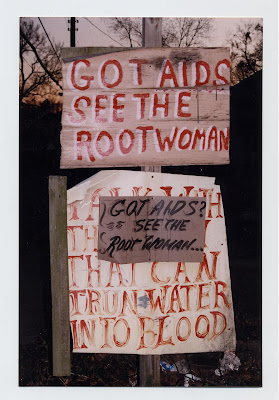 GOT AIDS
SEE THE
ROOT WOMAN
GOT AIDS?
SEE THE
ROOT WOMAN...
TALK WITH
THAT CAN
TRUN WATER
INTO BLOOD.